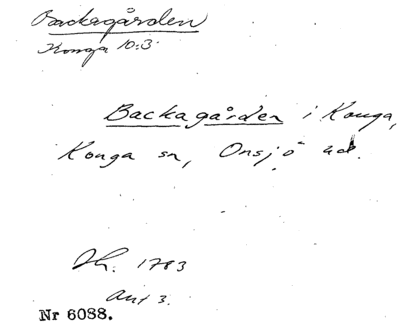 Backagården
Konga 10:3
Backagården i Konga,
Konga sn, Onsjö hd.
Jh. 1783
Nr 6088.